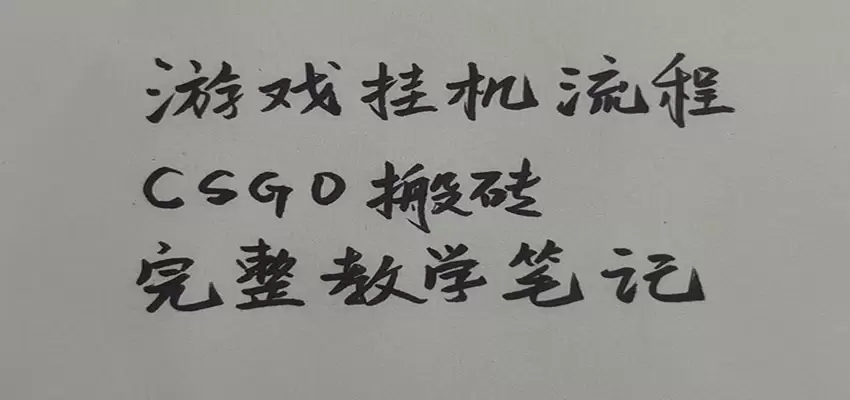 游戏挂机流程
CSGO搬砖
完整教学笔记